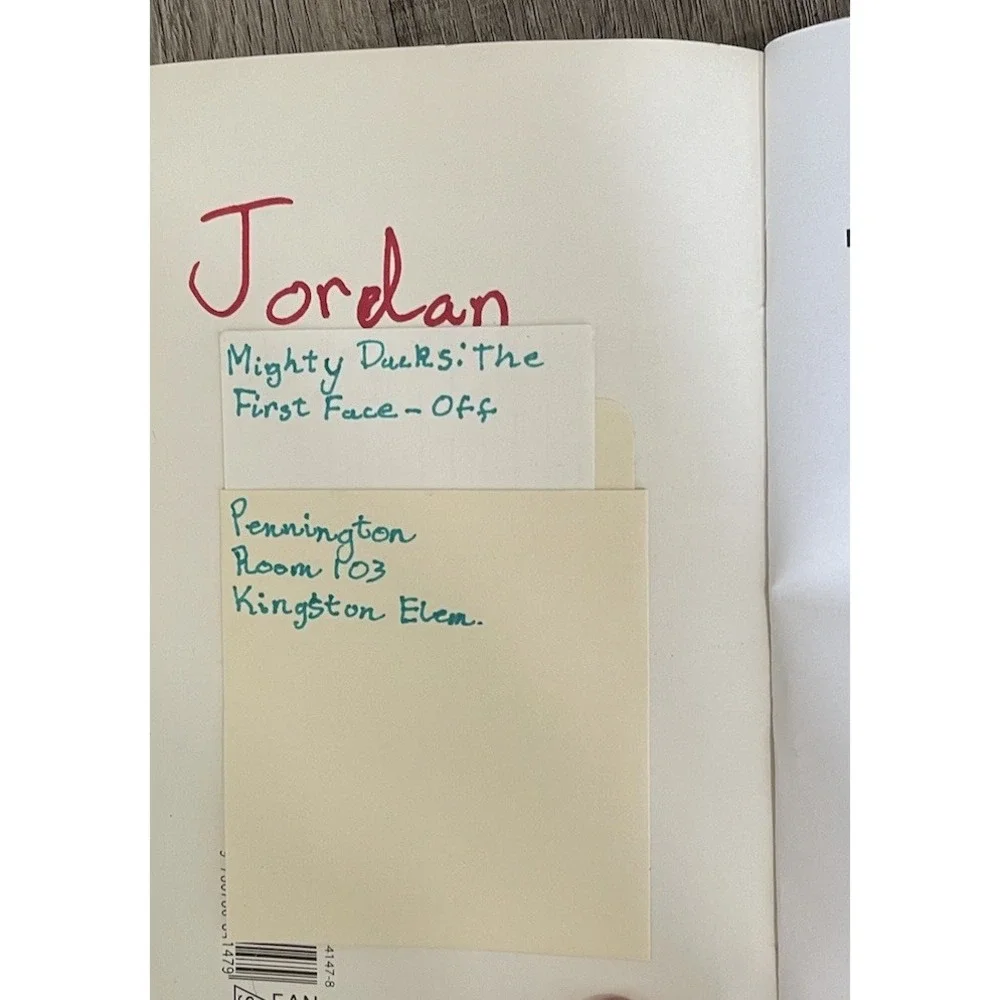 Jordan
Mighty Ducks: The
First Face-Off
Pennington
Room 103
Kingston Elem.
4147-8
EAN